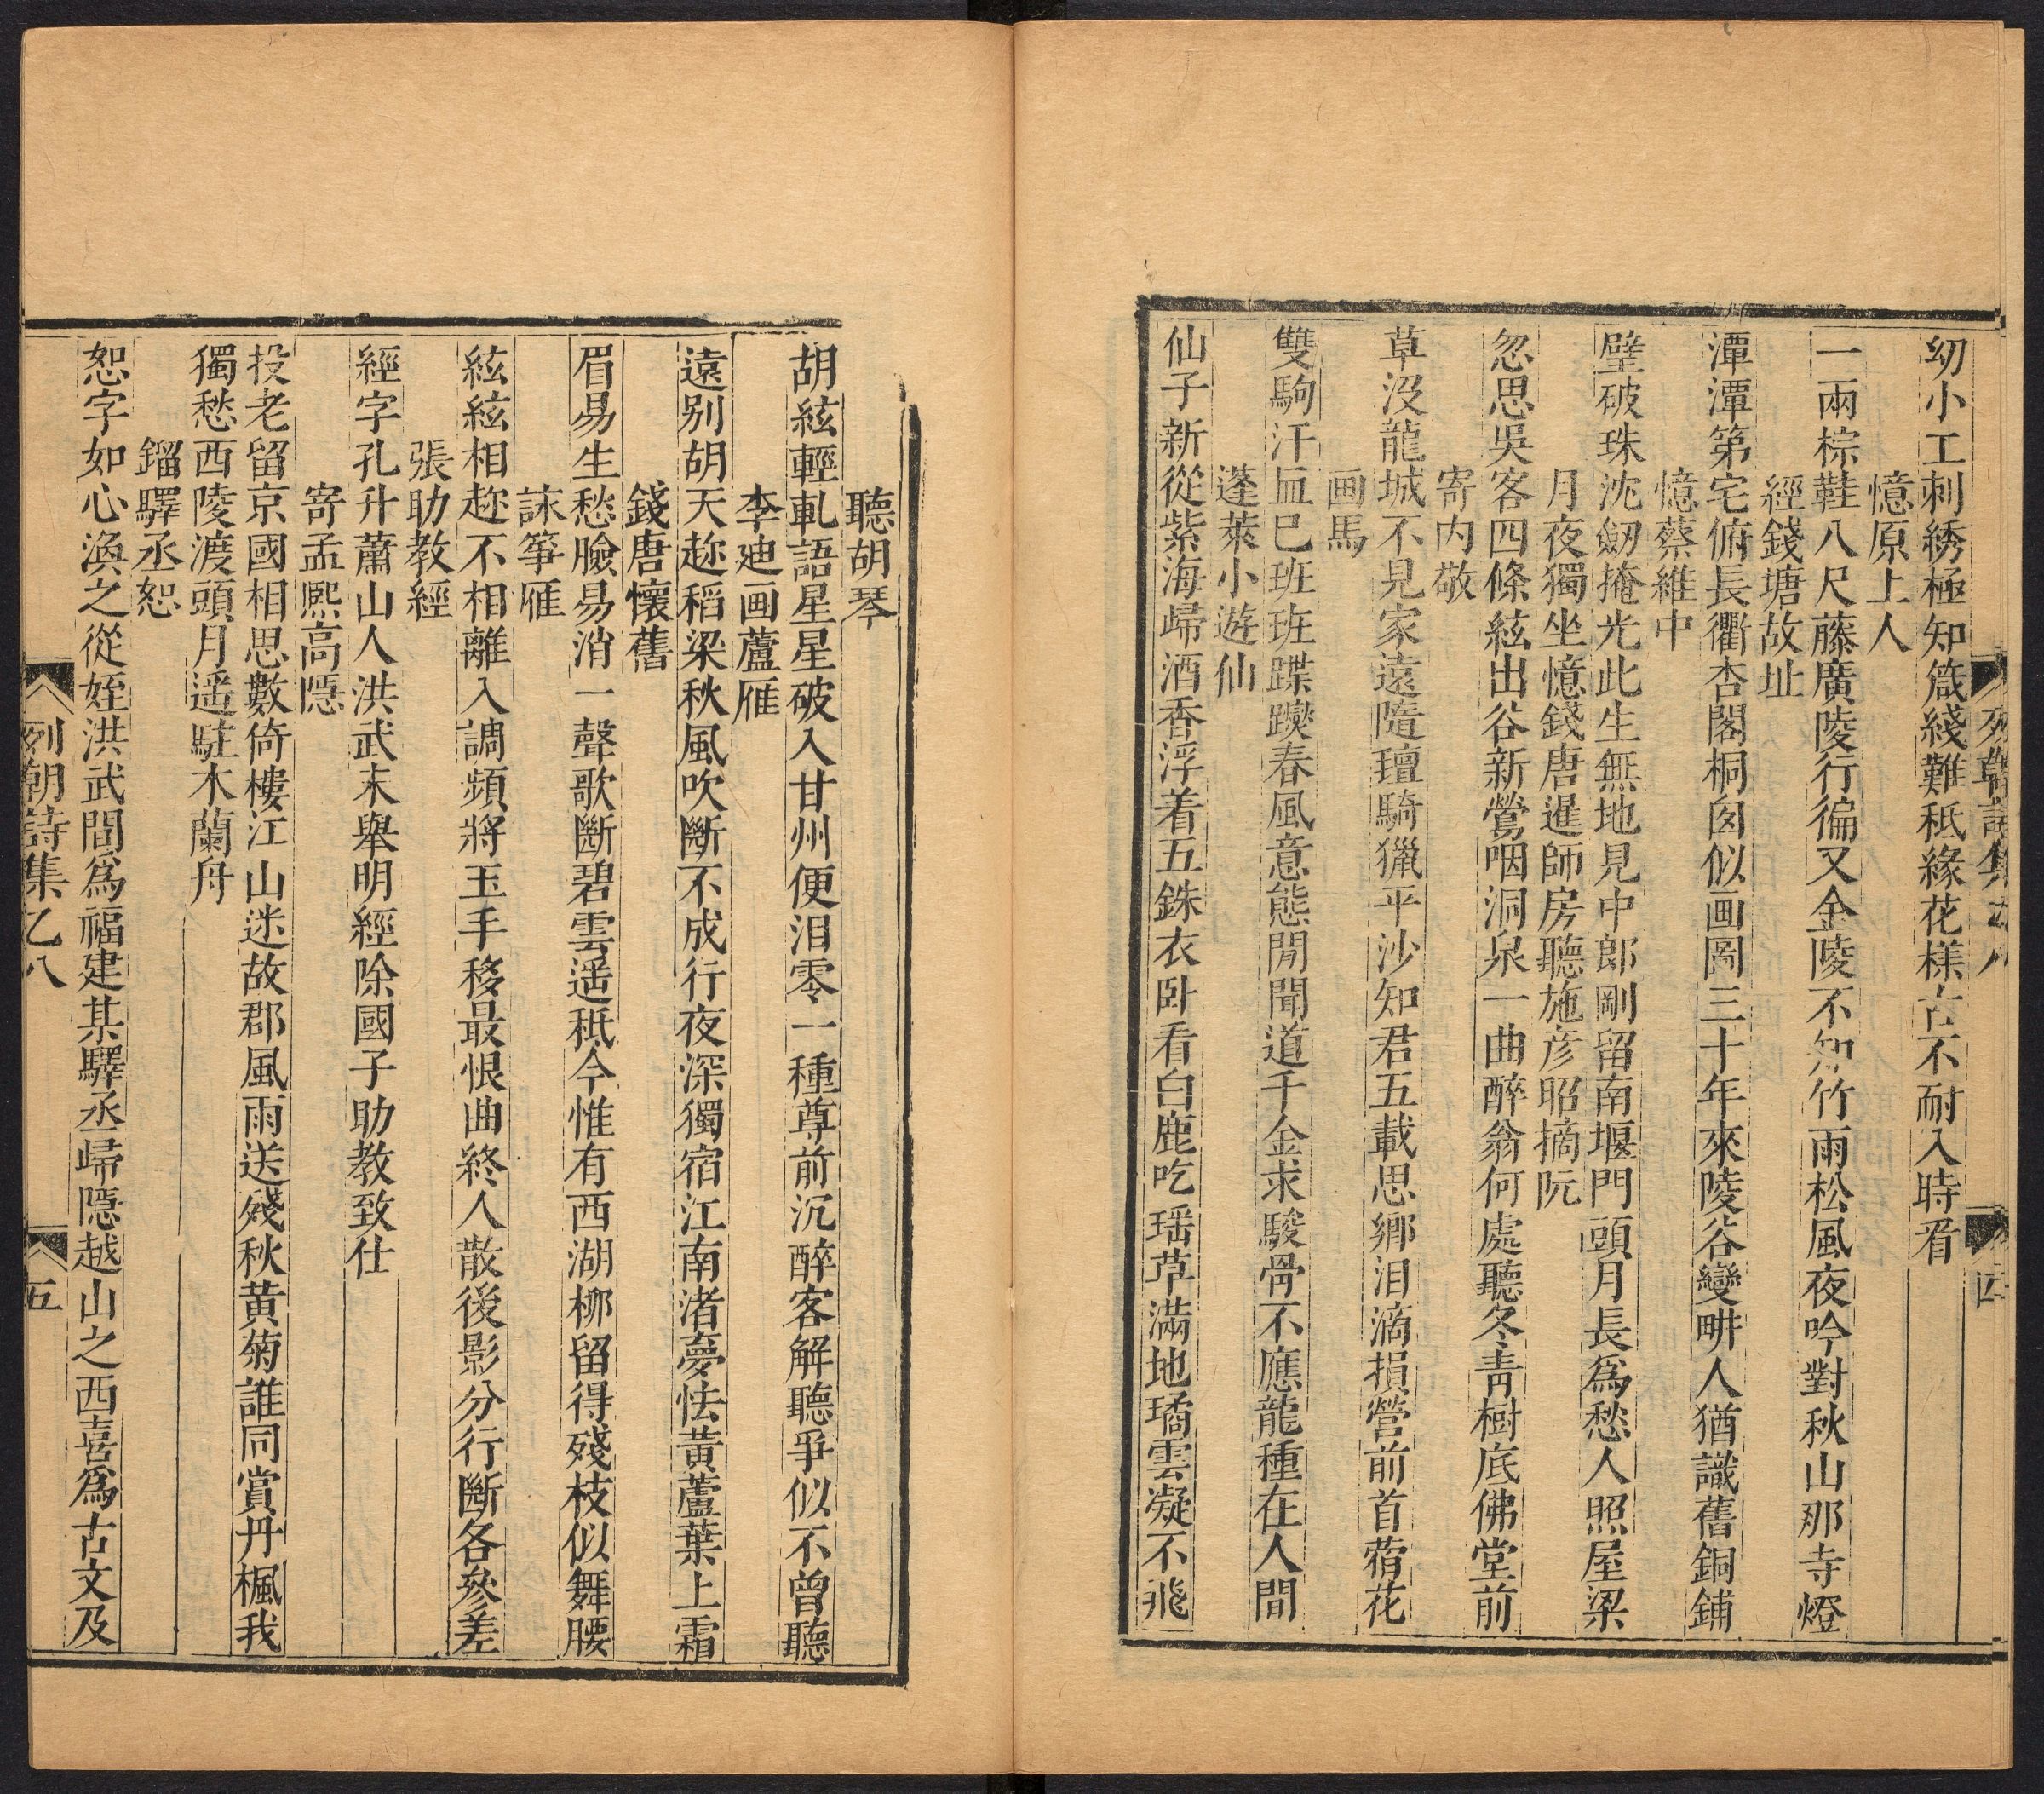 幼小工刺綉極知箴綫難秪緣花樣古不耐入時看
憶原上人
一兩棕鞋八尺藤廣陵行徧又金陵不知竹雨松風夜吟對秋山那寺燈
經錢塘故址
潭潭第宅俯長衢杏閣桐囪似画圖三十年來陵谷變畊人猶識舊銅鋪
憶蔡維中
璧破珠沈劒掩光此生無地見中郎剛留南堰門頭月長爲愁人照屋梁
月夜獨坐憶錢唐暹師房聽施彦昭摘阮
忽思吳客四條絃出谷新鶯咽洞泉一曲醉翁何處聽冬青樹底佛堂前
寄内敬
草沒龍城不見家遠隨䍐騎獵平沙知君五載思鄉泪滴損營前首蓿花
画馬
雙駒汗血巳班班蹀躞春風意態閒聞道千金求駿骨不應龍種在人間
蓬萊小遊仙
仙子新從紫海歸酒香浮着五銖衣卧看白鹿吃瑶草滿地璚雲凝不飛
聽胡琴
胡絃輕軋語星星破入甘州便泪零一種尊前沉醉客解聽爭似不曾聽
李廸画蘆雁
遠别胡天趂稻粱秋風吹斷不成行夜深獨宿江南渚夢怯黄蘆葉上霜
錢唐懷舊
眉易生愁臉易消一聲歌斷碧雲遥秪今惟有西湖栁留得殘枝似舞腰
詠箏雁
絃絃相趂不相離入調頻將玉手移最恨曲終人散後影分行斷各參差
張助教經
經字孔升蕭山人洪武末舉明經除國子助教致仕
寄孟熈高隱
投老留京國相思數倚樓江山迷故郡風雨送殘秋黄菊誰同賞丹楓我
獨愁西陵渡頭月遥駐木蘭舟
鎦驛丞恕
恕字如心渙之從姪洪武間爲福建某驛丞歸隱越山之西喜爲古文及
列朝詩集乙八
五